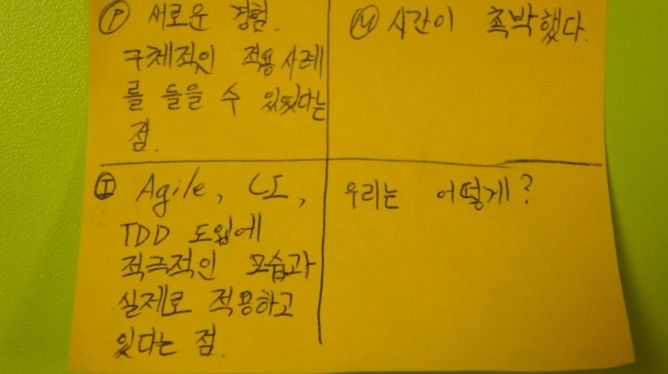 Ⓟ 서로운 경험.
구체적인 적용사례
를 들을 수 있었다는
점.
Ⓜ 시간이 촉박했다.
Ⓘ Agile, CI,
TDD 도입에
적극적인 모습과
실제로 적용하고
있다는 점.
우리는 어떻게?